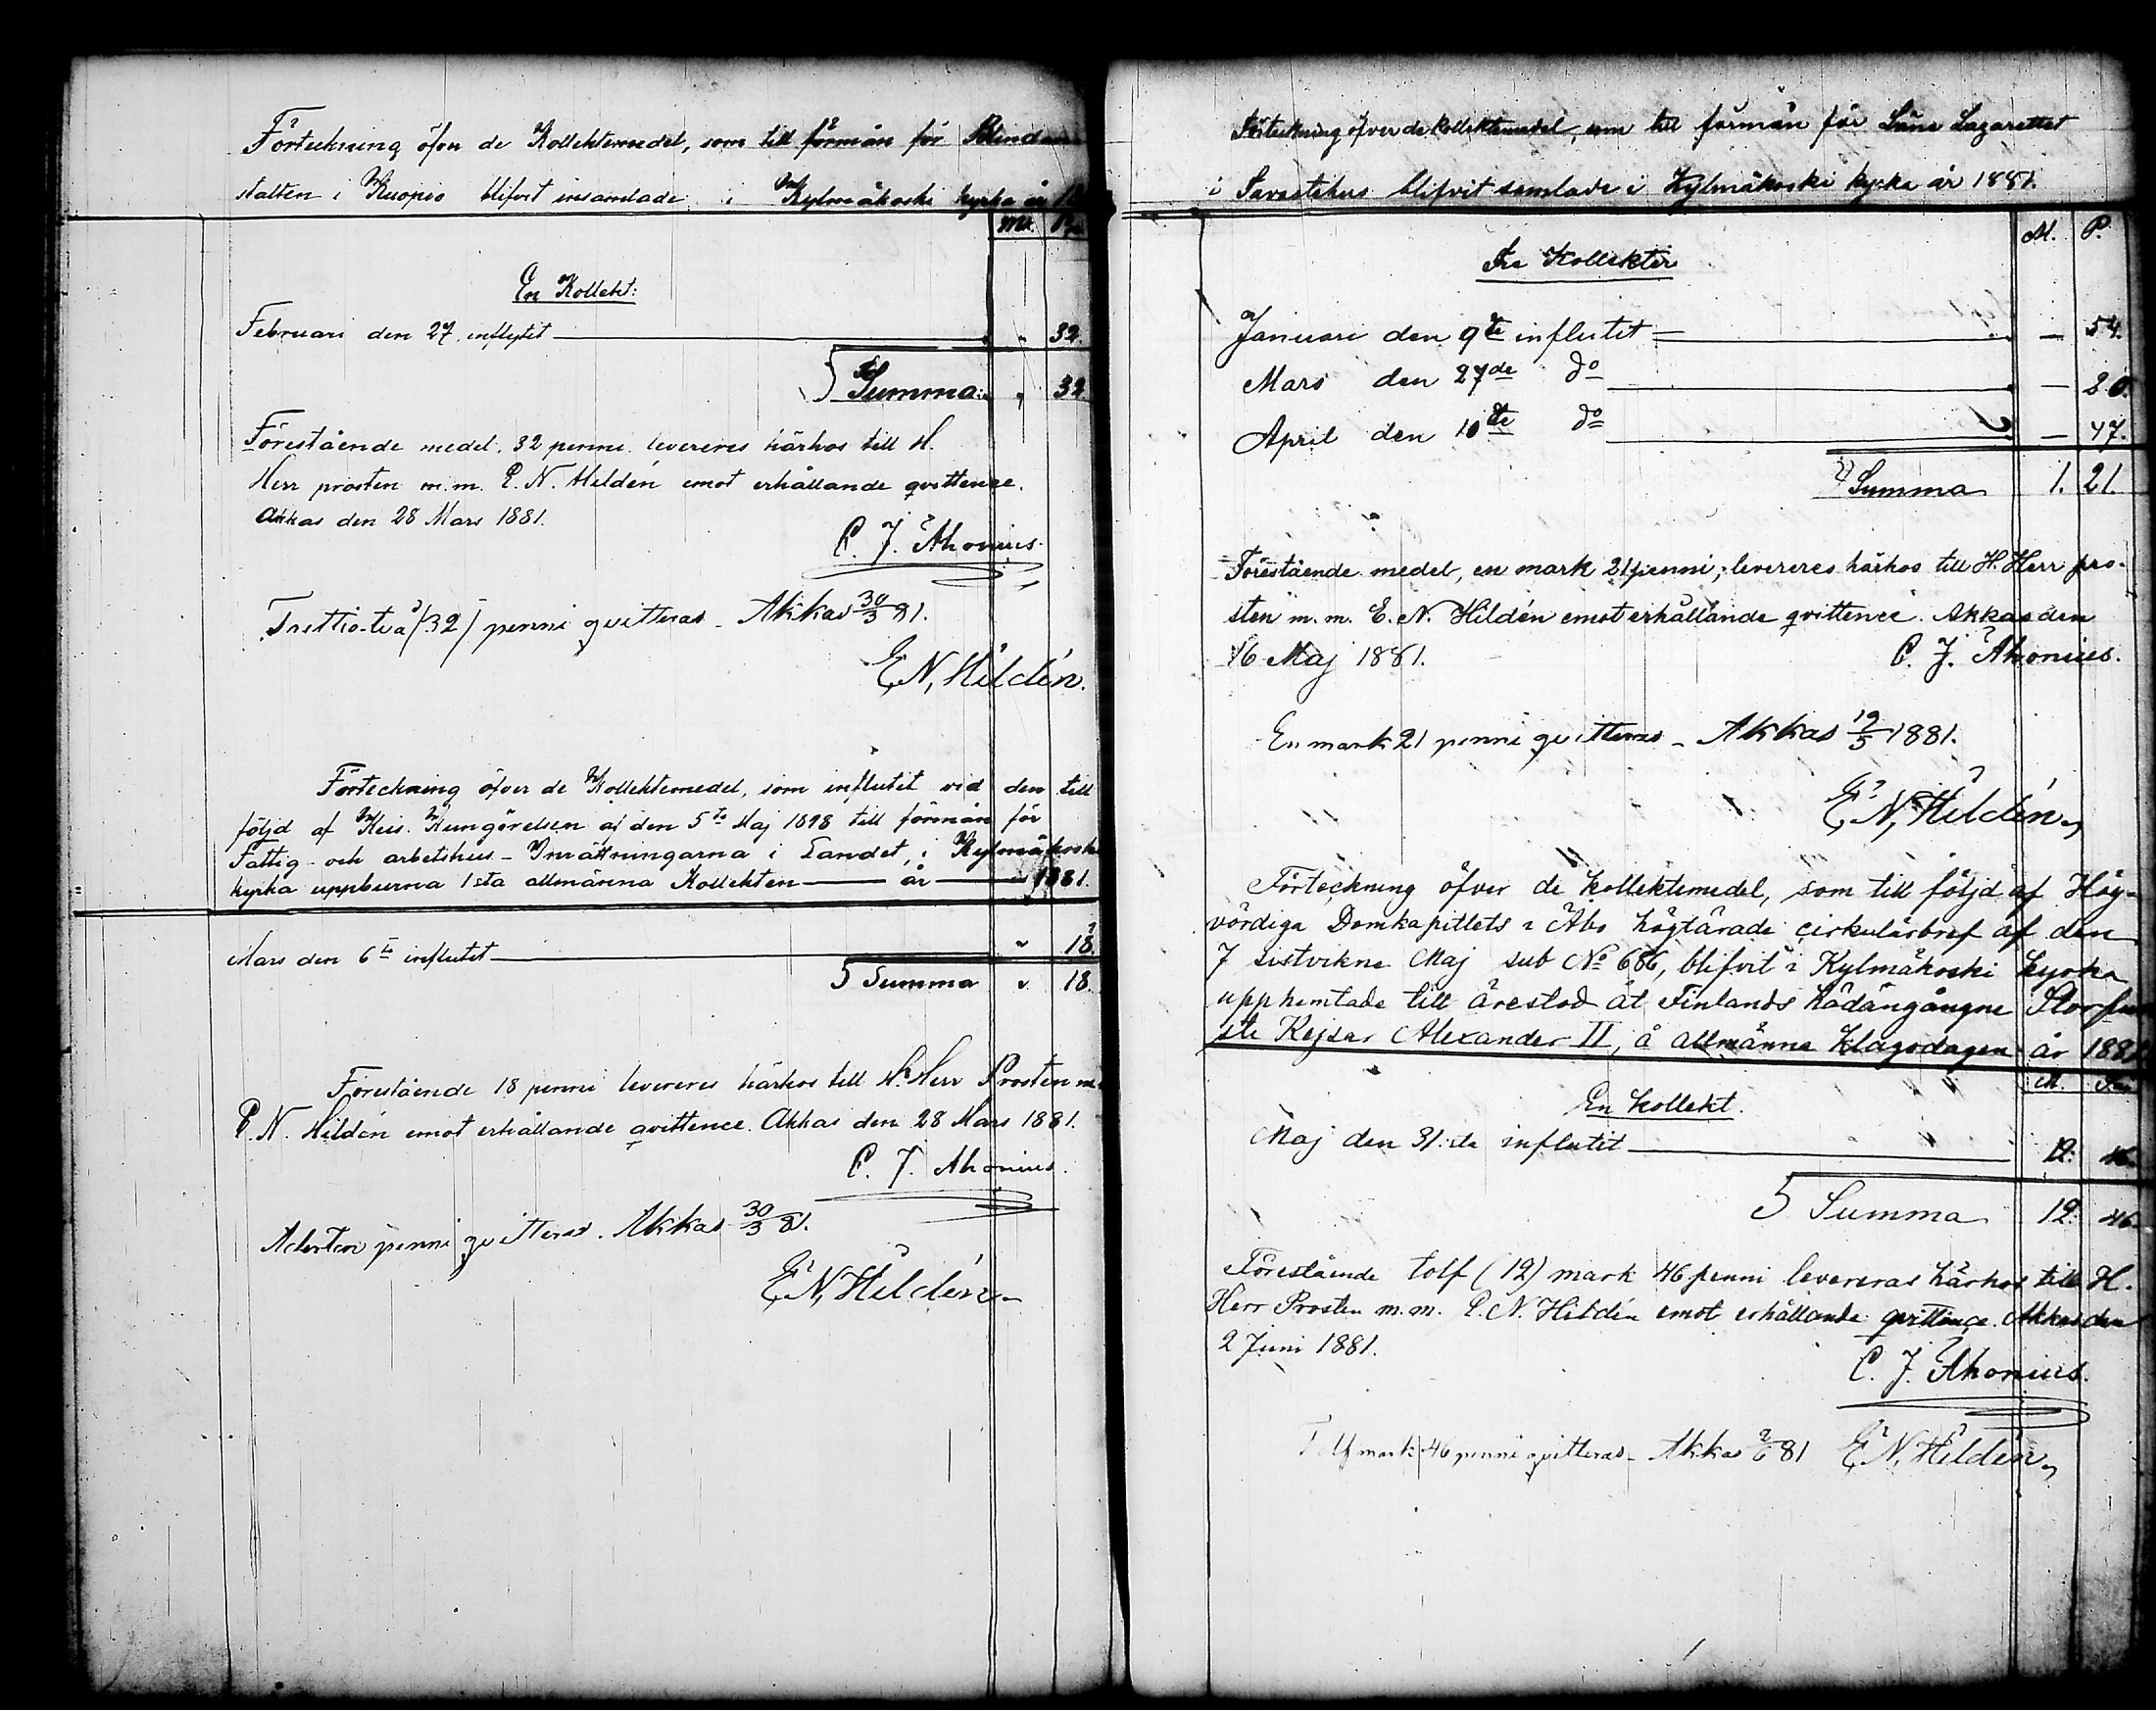 Förteckning öfver de Kollektemedel, som till förmån för Blindan
stalten i Kuopio blifvit insamlade i Kylmäkoski kyrka år 18
Mk. P
En Kollekt:
Februari den 27 inflytit " 32.
Summa: " 32.
Förestående medel, 32 penni levereres härhos till H.
Herr prosten m.m. E. N. Hildén emot erhållande qvittence.
Akkas den 28 Mars 1881.
C. J. Ahonius.
Trettio-två (32) penni qvitteras _ Akkas 30/3 81.
E. N. Hildén.
Förteckning öfver de Kollektemedel, som influtit vid den till
följd af Keis. Kungörelsen af den 5te Maj 1898 till förmån för
Fattig- och arbetshus-Inrättningarna i Landet, i Kylmäkoski
kyrka uppburna 1sta allmänna Kollekten — år — 1881.
Mars den 6te influtit " 18.
Summa " 18.
Förestående 18 penni levereres härhos till H. Herr Prosten m.
E. N. Hildén emot erhållande qvittence. Akkas den 28 Mars 1881.
C. J. Ahonius.
Aderton penni qvitteras. Akkas 30/3 81.
E. N. Hildén
Förteckning öfver de kollektemedel, som till förmån för Läns Lazarettet
i Tavastehus blifvit samlade i Kylmäkoski kyrka år 1881.
M. P.
Tre Kollekter
Januari den 9te influtit — 54.
Mars den 27de do — 20.
April den 10de do — 47.
Summa 1. 21.
Förestående medel, en mark 21 penni, levereres härhos till H. Herr pro-
sten m. m. E. N. Hildén emot erhållande qvittence. Akkas den
16 Maj 1881. C. J. Ahonius.
En mark 21 penni qvitteras _ Akkas 19/5 1881.
E. N. Hildén
Förteckning öfver de kollektemedel, som till följd af Hög-
vördiga Domkapitlets i Åbo högtärade cirkulärbref af den
7 sistvikne Maj sub No 686, blifvit i Kylmäkoski kyrka
upphemtade till ärestod åt Finlands hädangångne Storfur
ste Kejsar Alexander II, å allmänna klagodagen år 1881
M. Pen
En Kollekt.
Maj den 31.sta influtit 12. 46.
Summa 12. 46.
Förestående tolf (12) mark 46 penni levereras härhos till H.
Herr Prosten m. m. E. N. Hildén emot erhållande qvittence. Akkas den
2 Juni 1881.
C. J. Ahonius.
Tolf mark 46 penni qvitteras _ Akkas 2/6 81 E. N. Hildén